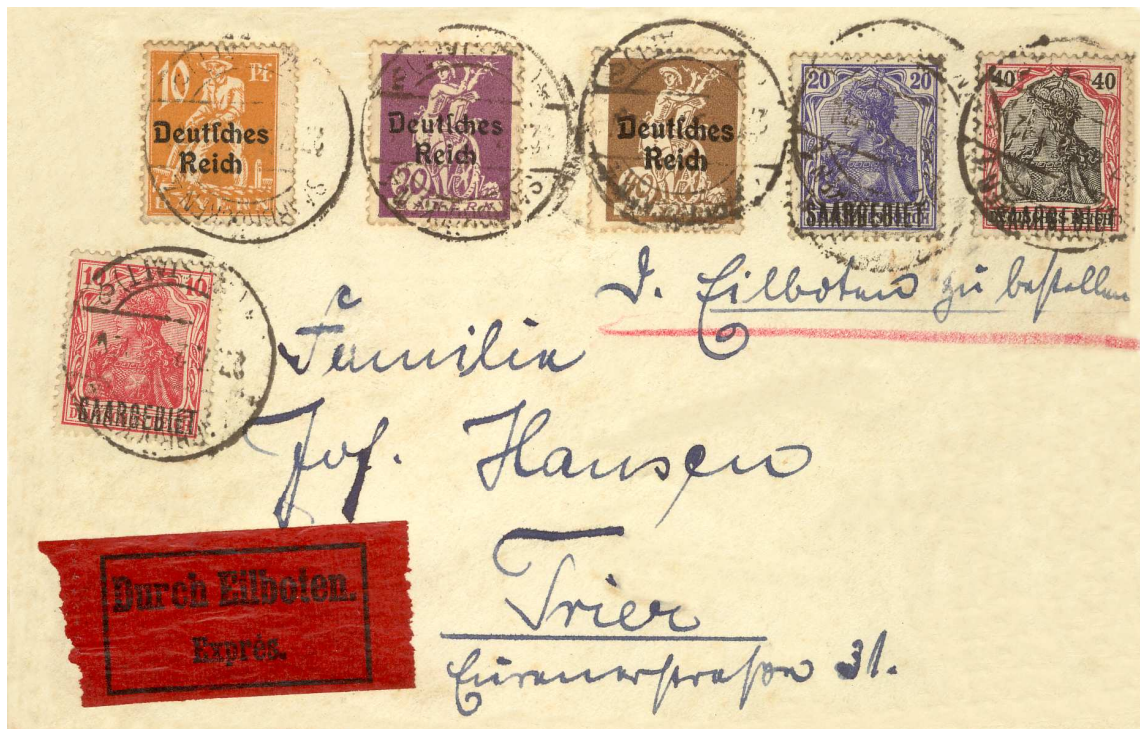 10 Pf
Deutsches
Reich
BAYERN
Deutsches
Reich
60
BAYERN
Deutsches
Reich
20 20
SAARGEBIET
40 40
SAARGEBIET
SAARBRÜCKEN 2
10 10
SAARGEBIET
d. Eilboten zu bestellen
Familie
Jos. Hansen
Trier
Eurenerstraße 31.
Durch Eilboten.
Exprès.